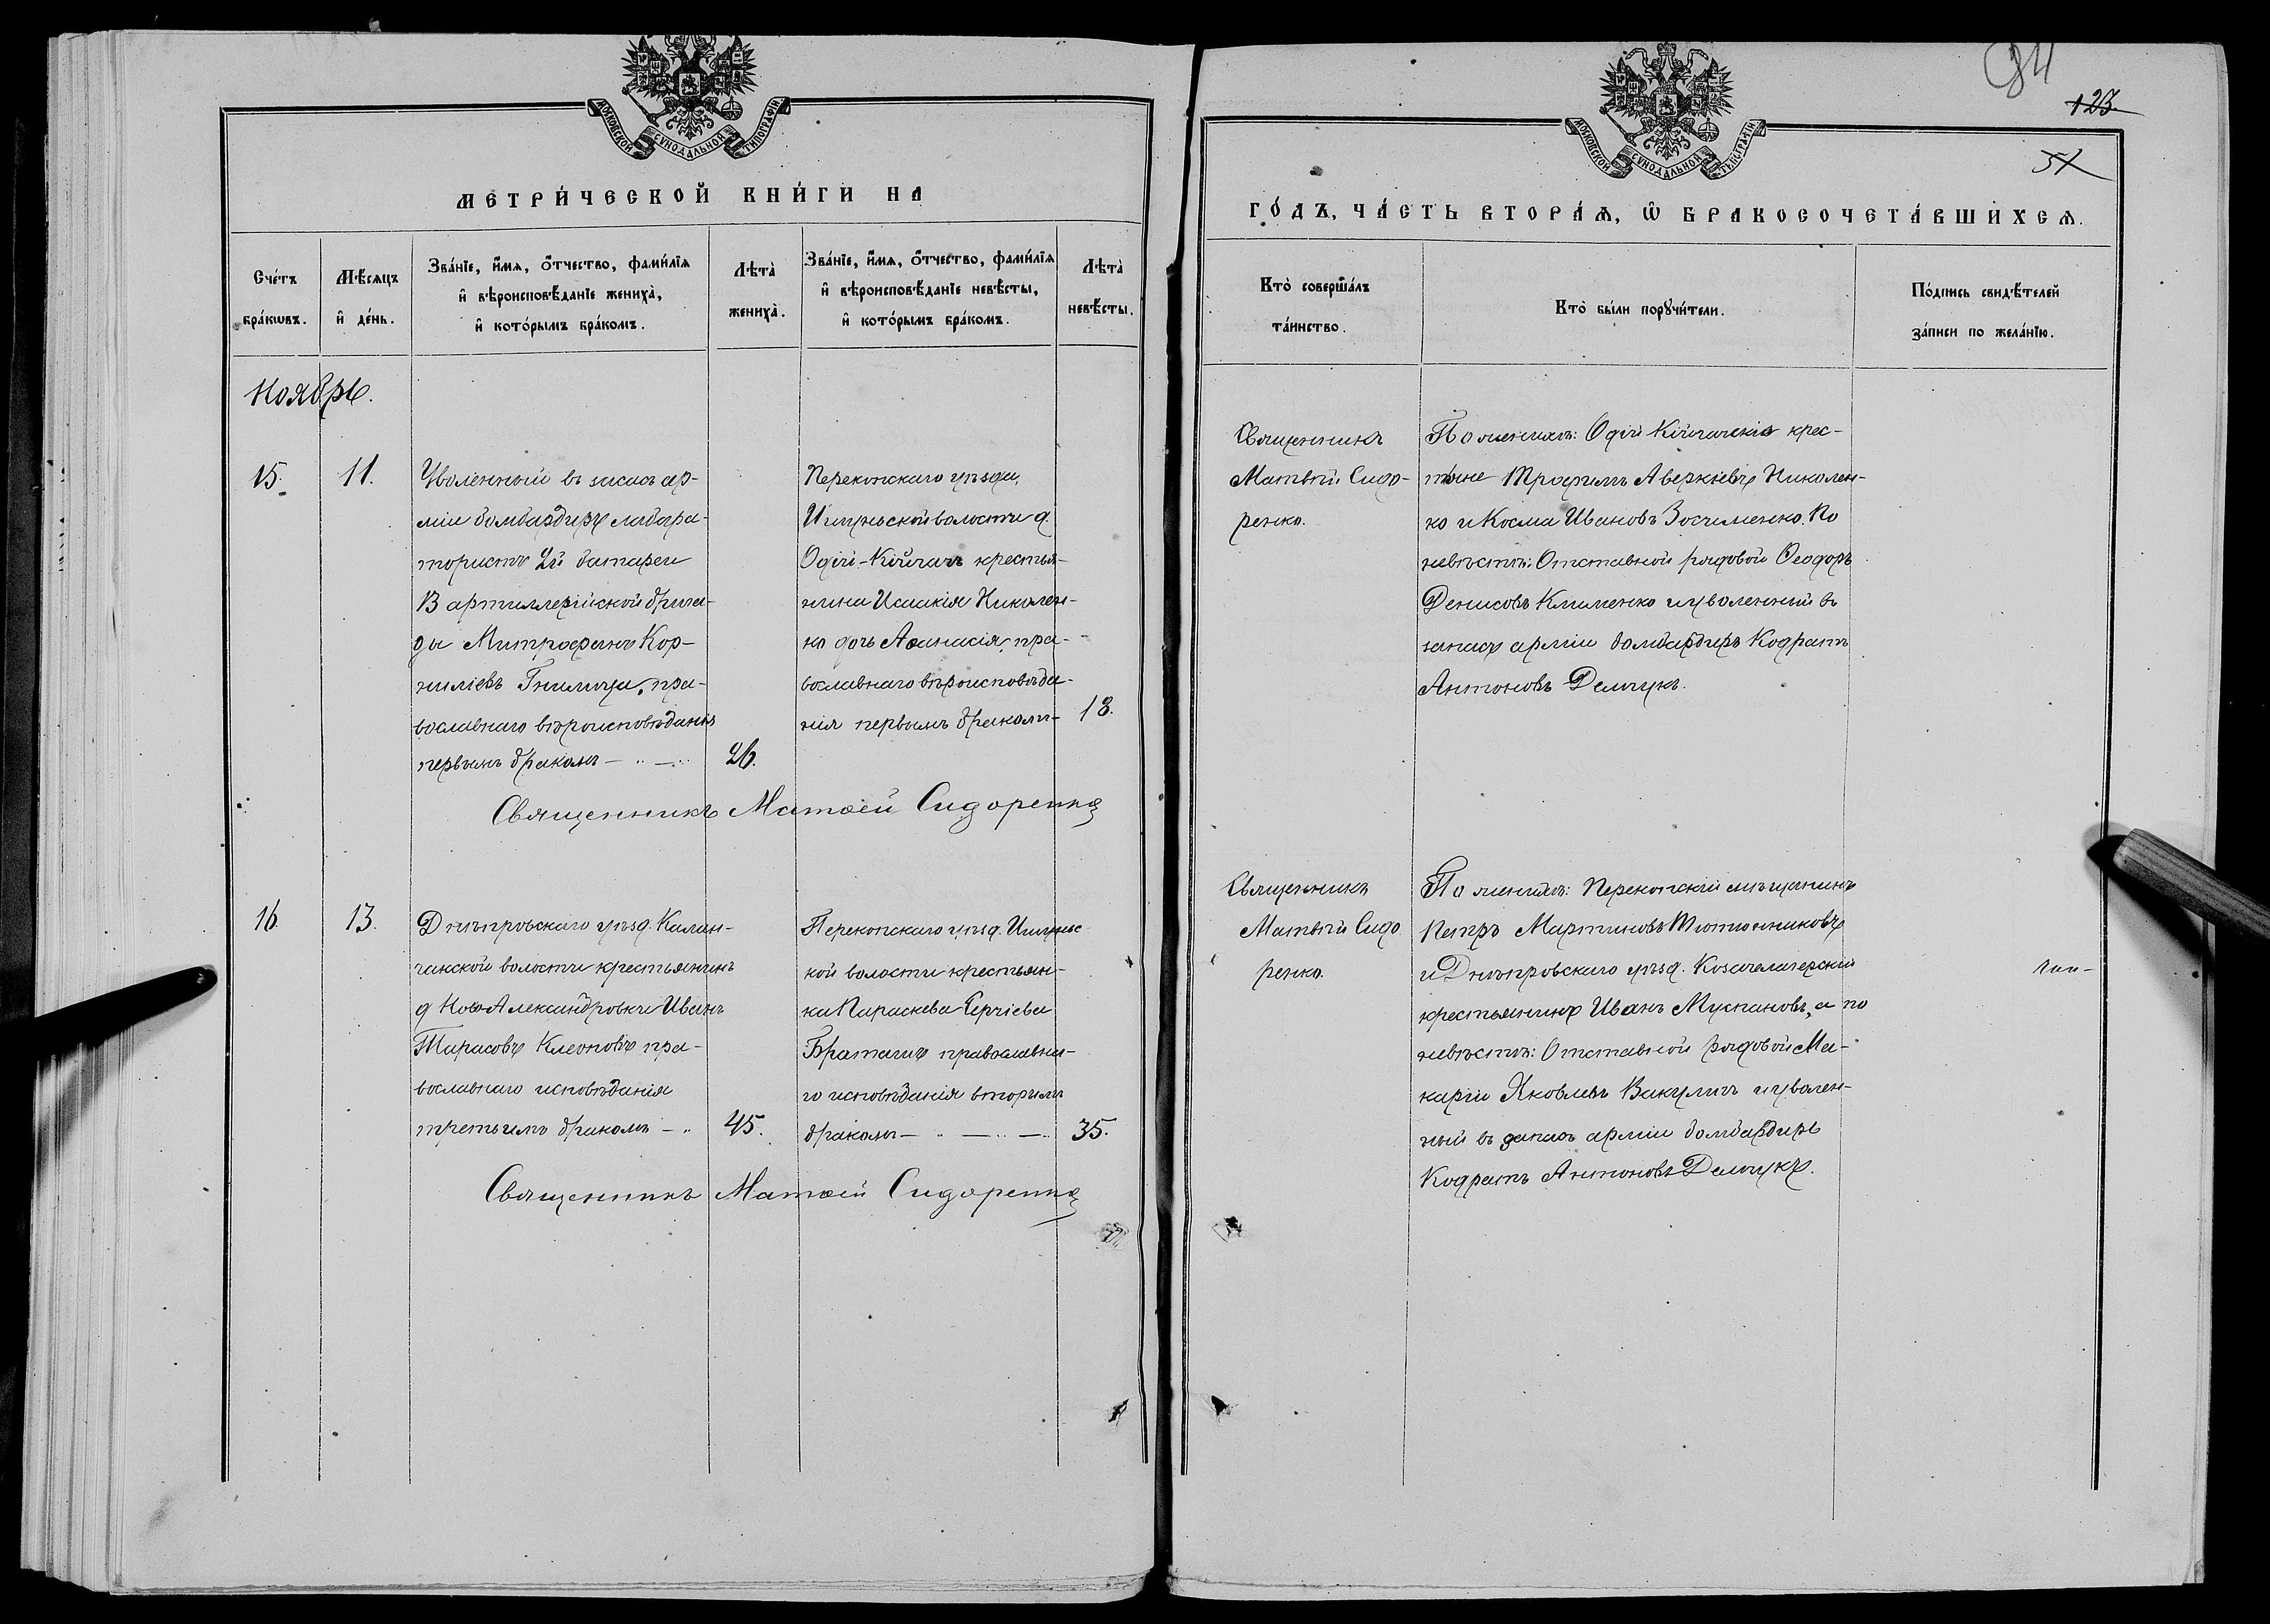 МОСКОВСКОЙ СѴНОДАЛЬНОЙ ТИПОГРАФІИ
МЕТРИ́ЧЕСКОЙ КНИ́ГИ НА
Сче́тъ бра́кѡвъ.
Мѣ́сяцъ и҆ де́нь.
Зва́нїе, и҆́мѧ, ѻ҆́тчество, фами́лїѧ и҆ вѣроисповѣ́данїе жениха̀, и҆ кото́рымъ бра́комъ.
Лѣта̀ жениха̀.
Зва́нїе, и҆́мѧ, ѻ҆́тчество, фами́лїѧ и҆ вѣроисповѣ́данїе невѣ́сты, и҆ кото́рымъ бра́комъ.
Лѣта̀ невѣ́сты.
Ноябрь.
15.
11.
Уволенный въ запасъ ар-
міи бомбардиръ лабора-
тористъ 2й батареи
13 артиллерійской брига-
ды Митрофанъ Кор-
ниліевъ Гнилица, пра-
вославнаго вѣроисповѣданія
первымъ бракомъ
26.
Перекопскаго уѣзда,
Ишуньской волости д.
Одгій-Кійчакъ крестья-
нина Исаакія Николен-
ко дочь Аѳанасія, пра-
вославнаго вѣроисповѣда-
нія первымъ бракомъ-
18.
Священникъ Матѳей Сидоренко
16.
13.
Днѣпровскаго уѣзд. Калан-
чакской волости крестьянинъ
д НовоАлександровки Иванъ
Тарасовъ Клеоновъ пра-
вославнаго исповѣданія
третьимъ бракомъ
45.
Перекопскаго уѣзд. Ишуньс
кой волости крестьян-
ка Параскева Сергіева
Браташъ православна-
го исповѣданія вторымъ
бракомъ
35.
Священникъ Матѳей Сидоренко
84
123.
51
МОСКОВСКОЙ СѴНОДАЛЬНОЙ ТИПОГРАФІИ
ГО́ДЪ, ЧА́СТЬ ВТОРА́Ѧ, Ѽ БРАКОСОЧЕТА́ВШИХСѦ.
Кто̀ соверша́лъ та́инство.
Кто̀ бы́ли порꙋчи́тели.
По́дпись свидѣ́телей за́писи по жела́нїю.
Священникъ
Матвѣй Сидо-
ренко.
По женихѣ: Одгій Кійчакскіе крес-
тьяне Трофимъ Аверкіевъ Николен-
ко и Косма Ивановъ Зосименко. По
невѣстѣ: Отставной рядовой Ѳеодоръ
Денисовъ Клименко и уволенный въ
запасъ арміи бомбардиръ Кодратъ
Антоновъ Демчукъ.
Священникъ
Матвѣй Сидо
ренко.
По женихѣ: Перекопскій мѣщанинъ
Петръ Мартиновъ Тютюнниковъ
и Днѣпровскаго уѣзд. Козачелагерскій
крестьянинъ Иванъ Муспановъ, а по
невѣстѣ: Отставной рядовой Ма-
карій Яковлевъ Вакуличъ и уволен-
ный въ запасъ арміи бомбардиръ
Кодратъ Антоновъ Демчукъ.